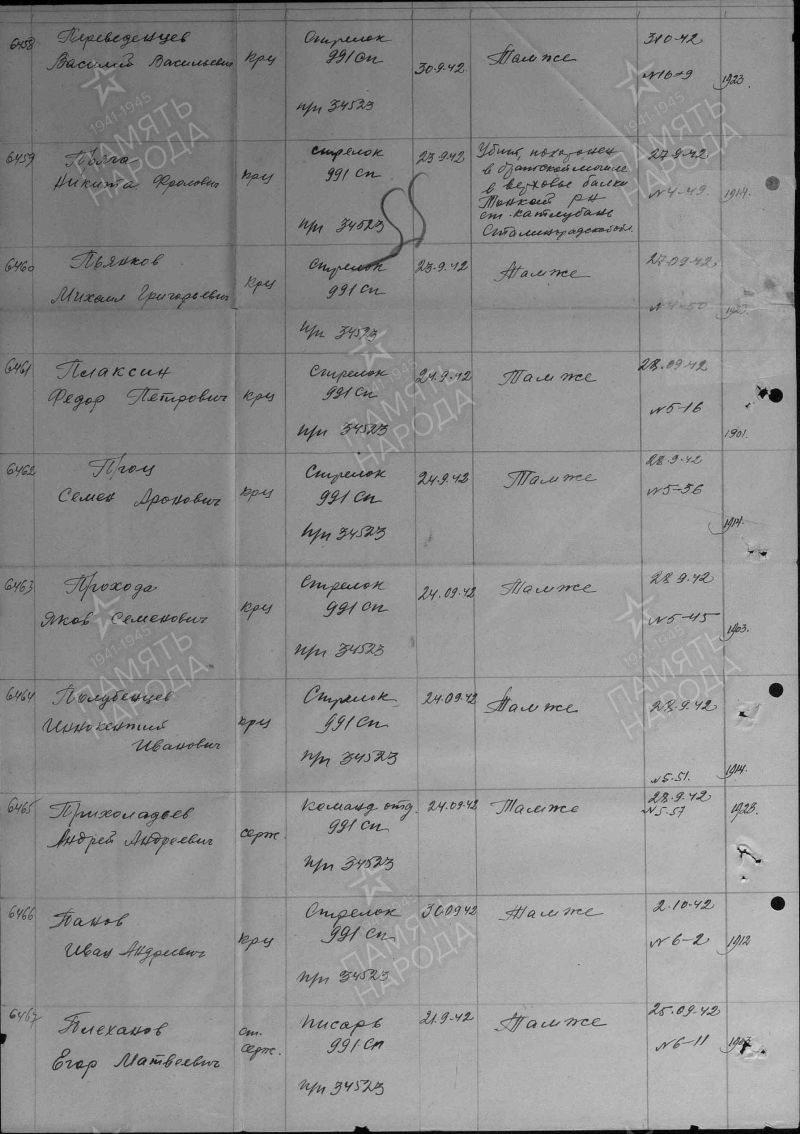 6458 Переведенцев
Василий Васильевич крц
Стрелок
991 сп
пп 34523
30.9.42
Там же
3.10.42
№16-9
1923
6459
Никита Фролович крц
стрелок
991 сп
пп 34523
23.9.42
Убит, похоронен
в братской могиле
в верховье балки
Тонкой р-н
ст. Катлубань
Сталинградской обл.
27.9.42
№4-49
1914
6460 Пьянков
Михаил Григорьевич крц
Стрелок
991 сп
пп 34523
23.9.42
Там же
27.09.42
№4-50
1923
6461 Плаксин
Федор Петрович крц
Стрелок
991 сп
пп 34523
24.9.42
Там же
28.09.42
№5-16
1901
6462 Проц
Семен Аронович крц
Стрелок
991 сп
пп 34523
24.9.42
Там же
28.9.42
№5-36
1914
6463 Прохода
Яков Семенович крц
Стрелок
991 сп
пп 34523
24.09.42
Там же
28.9.42
№5-45
1903
6464 Полубенцев
Иннокентий
Иванович крц
Стрелок
991 сп
пп 34523
24.09.42
Там же
28.9.42
№5-51
1914
6465 Прихоладьев
Андрей Андреевич серж.
Команд отд.
991 сп
пп 34523
24.09.42
Там же
28.9.42
№5-57
1923
6466 Панов
Иван Андреевич крц
Стрелок
991 сп
пп 34523
30.09.42
Там же
2.10.42
№6-2
1912
6467 Плеханов
Егор Матвеевич
ст.
серж.
писарь
991 сп
пп 34523
21.9.42
Там же
25.09.42
№6-11
1941-1945
ПАМЯТЬ
НАРОДА
1941-1945
ПАМЯТЬ
НАРОДА
1941-1945
ПАМЯТЬ
НАРОДА
1941-1945
ПАМЯТЬ
НАРОДА
1941-1945
ПАМЯТЬ
НАРОДА
1941-1945
ПАМЯТЬ
НАРОДА